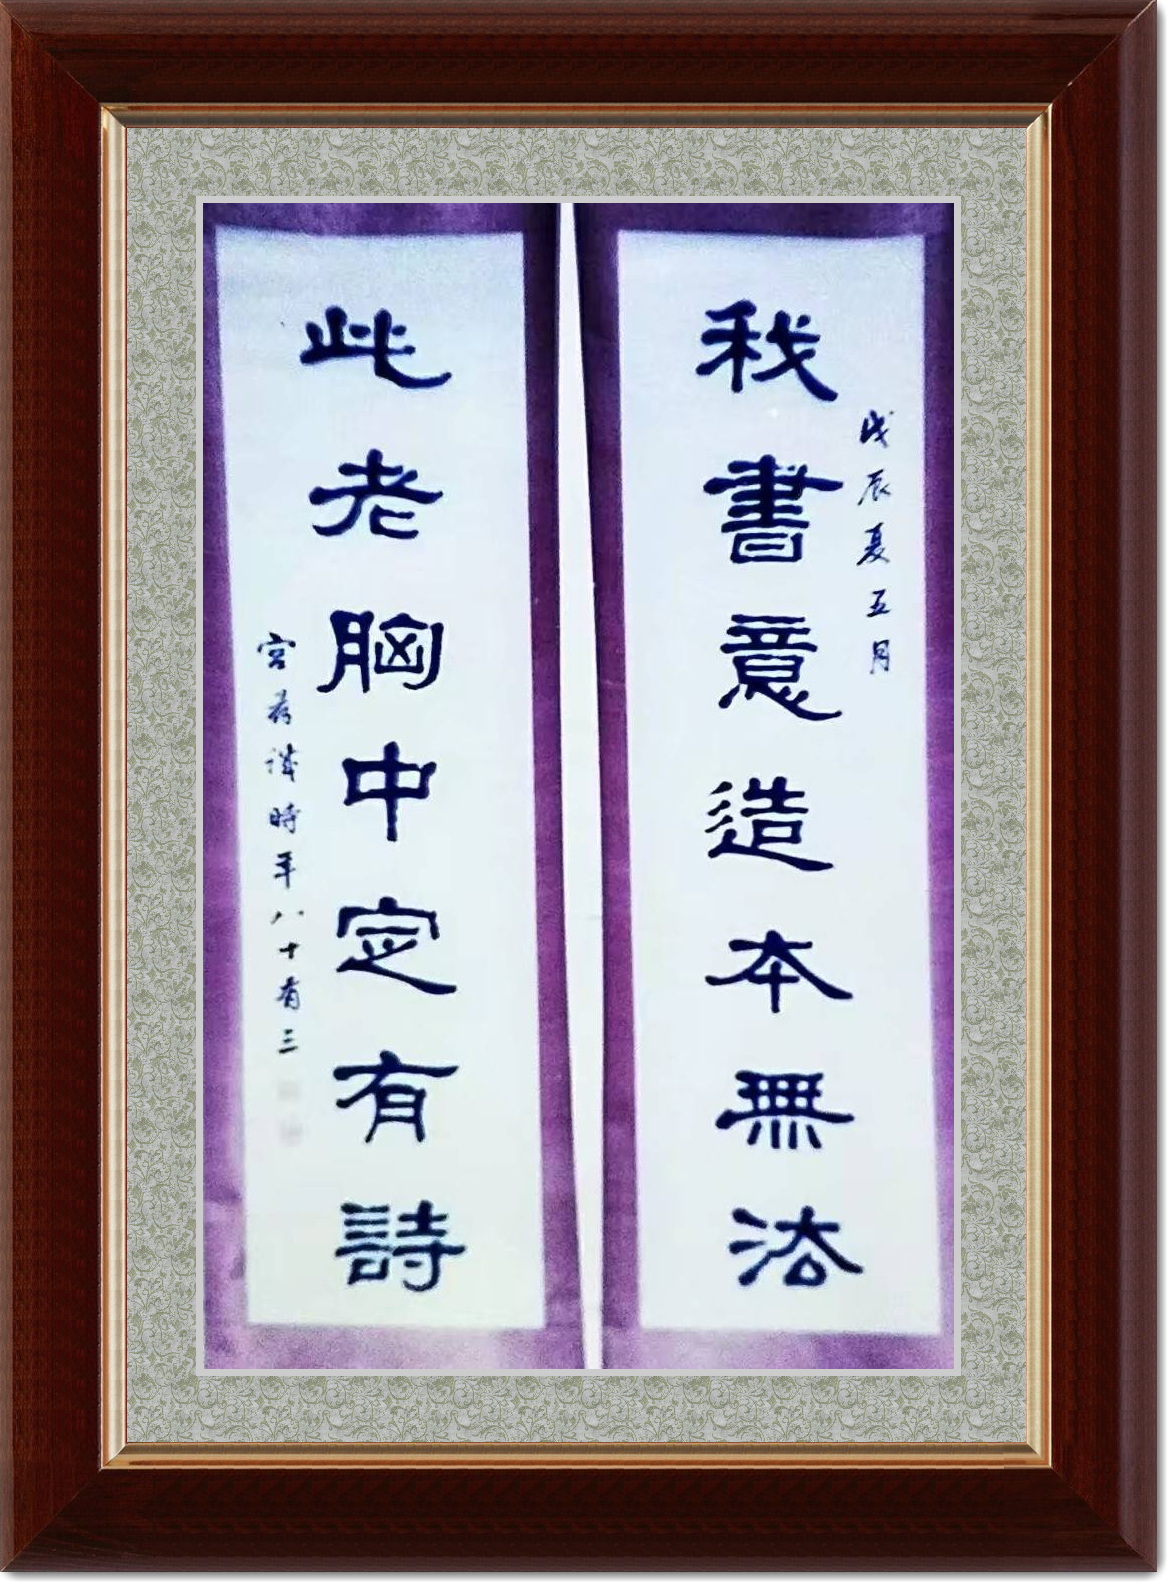 戊辰夏五月
我書意造本無法
此老胸中定有詩
時年八十有三